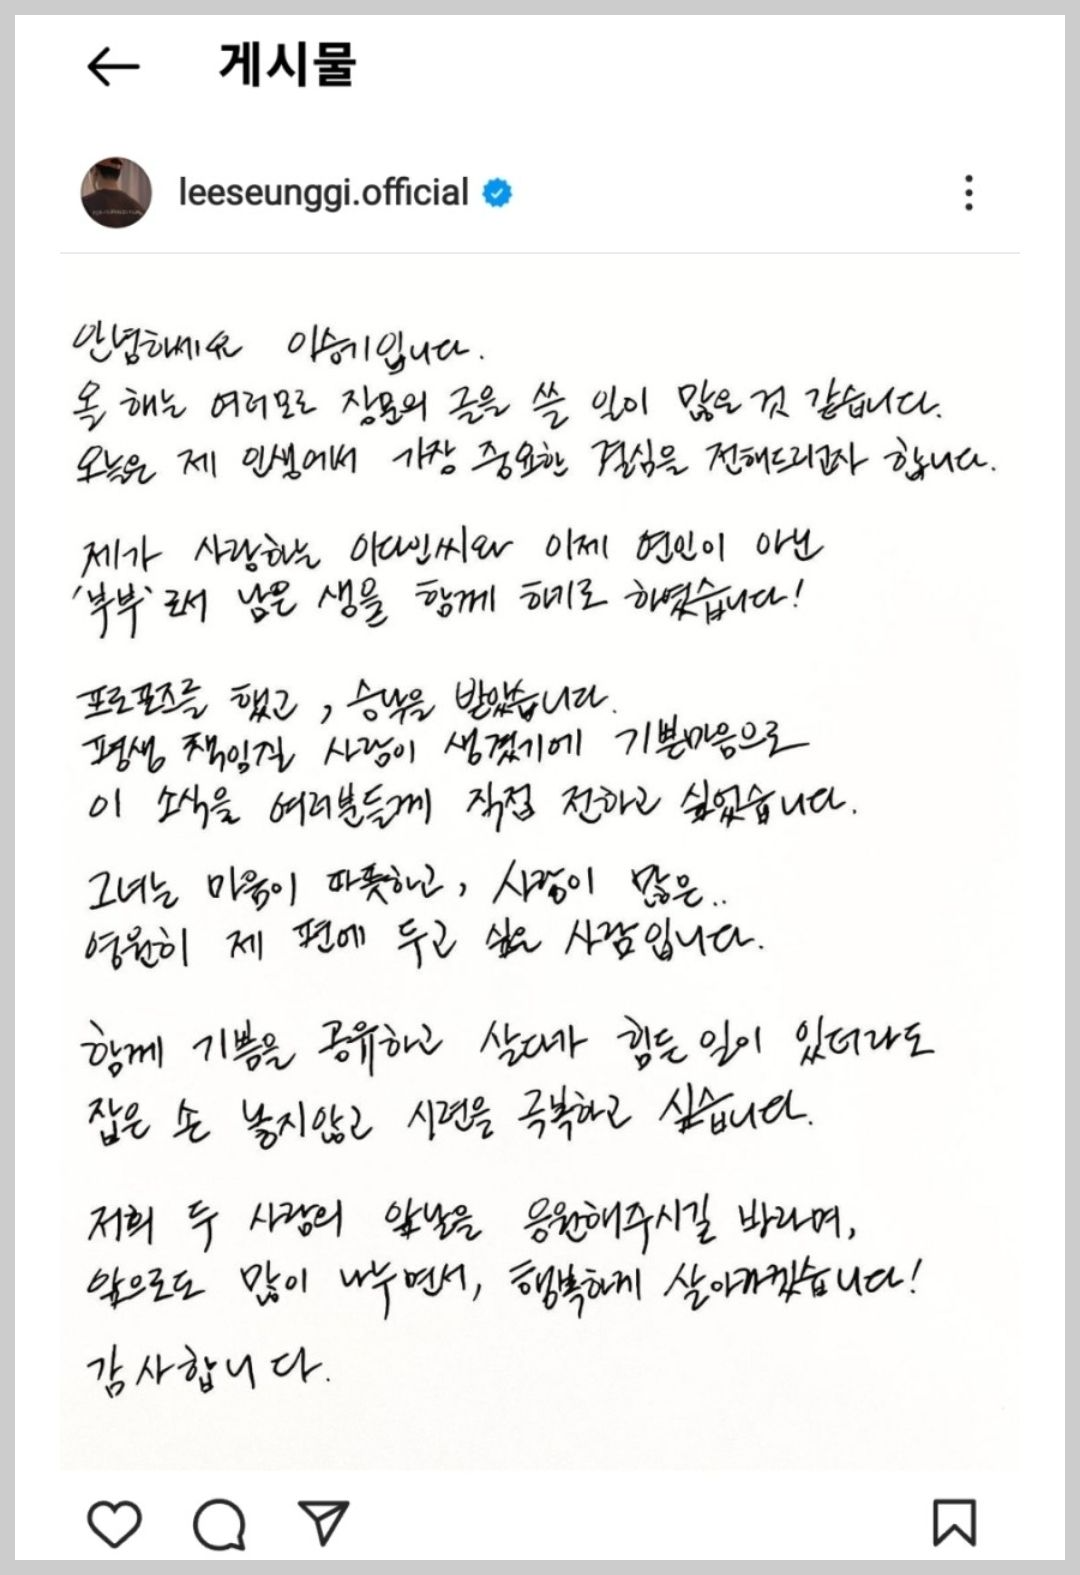 게시물
leeseunggi.official
안녕하세요 이승기입니다.
올 해는 여러모로 장문의 글을 쓸 일이 많은 것 같습니다.
오늘은 제 인생에서 가장 중요한 결심을 전해드리고자 합니다.
제가 사랑하는 이다인씨와 이제 연인이 아닌
'부부'로서 남은 생을 함께 하기로 하였습니다!
프로포즈를 했고, 승낙을 받았습니다.
평생 책임질 사람이 생겼기에 기쁜마음으로
이 소식을 여러분들께 직접 전하고 싶었습니다.
그녀는 마음이 따듯하고, 사랑이 많은..
영원히 제 편에 두고 싶은 사람입니다.
함께 기쁨을 공유하고 살다가 힘든 일이 있더라도
잡은 손 놓지않고 시련을 극복하고 싶습니다.
저희 두 사람의 앞날을 응원해주시길 바라며,
앞으로도 많이 나누면서, 행복하게 살아가겠습니다!
감사합니다.